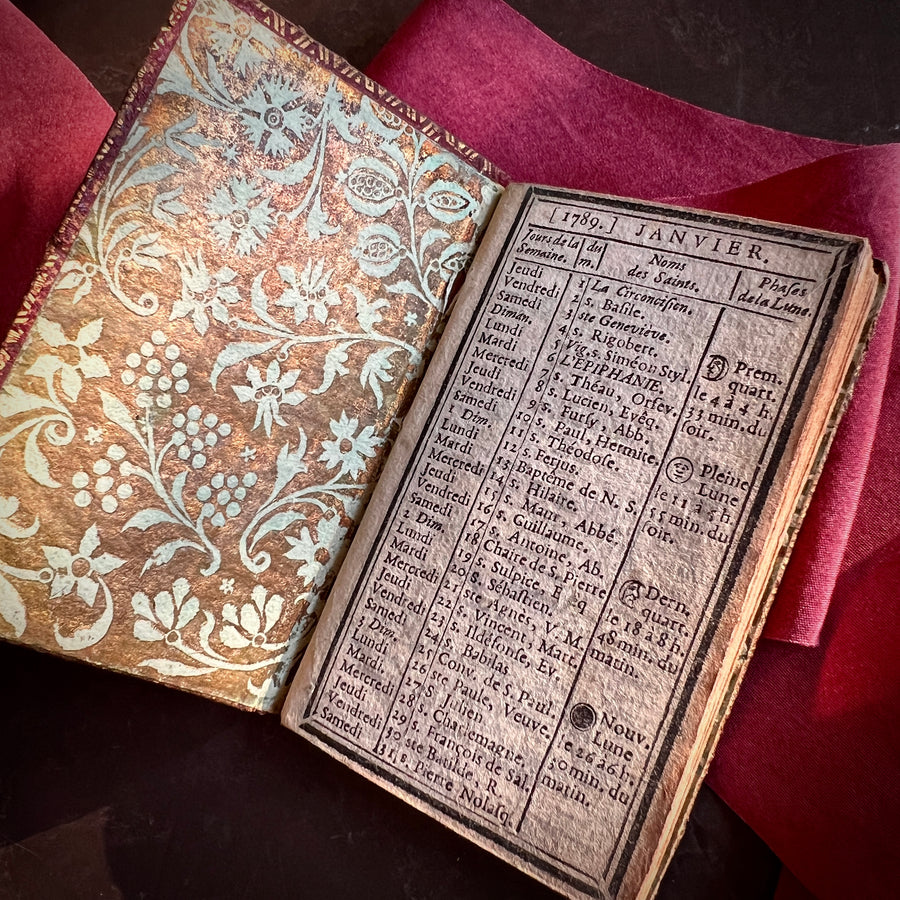 [ 1789. ] JANVIER.
Jours de la Semaine. | du m. | Noms des Saints. | Phases de la Lune.
Jeudi 1 La Circoncision.
Vendredi 2 S. Basile.
Samedi 3 ste Geneviève.
Diman. 4 S. Rigobert.
Lundi 5 Vig. S. Siméon Styl.
Mardi 6 L'ÉPIPHANIE.
Mercredi 7 S. Théau, Orfev.
Jeudi 8 S. Lucien, Evêq.
Vendredi 9 S. Furſy, Abb.
Samedi 10 S. Paul, Hermite.
1 Dim. 11 S. Théodoſe.
Lundi 12 S. Ferjus.
Mardi 13 Baptême de N. S.
Mercredi 14 S. Hilaire.
Jeudi 15 S. Maur, Abbé.
Vendredi 16 S. Guillaume.
Samedi 17 S. Antoine, Ab.
2 Dim. 18 Chaire de S. Pierre
Lundi 19 S. Sulpice, Evq
Mardi 20 S. Sébaſtien.
Mercredi 21 ste Agnès, V. M
Jeudi 22 S. Vincent, Mart.
Vendredi 23 S. Ildéfonſe, Ev.
Samedi 24 S. Babilas
3 Dim. 25 Conv. de S. Paul.
Lundi 26 ste Paule, Veuve.
Mardi 27 S. Julien
Mercredi 28 S. Charlemagne,
Jeudi 29 S. François de Sal.
Vendredi 30 ste Batilde, R.
Samedi 31 S. Pierre Nolaſq.
Prem.
quart.
le 4 à 4 h.
33 min. du
ſoir.
Pleine
Lune
le 11 à 5 h.
15 min. du
ſoir.
Dern.
quart.
le 18 à 8 h.
48 min. du
matin.
Nouv.
Lune
le 26 à 6 h.
30 min. du
matin.